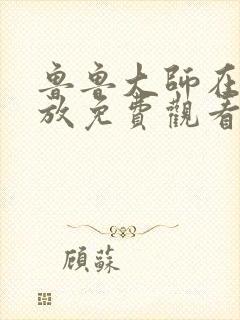 魯魯大師在
放免費觀看
顧蘇